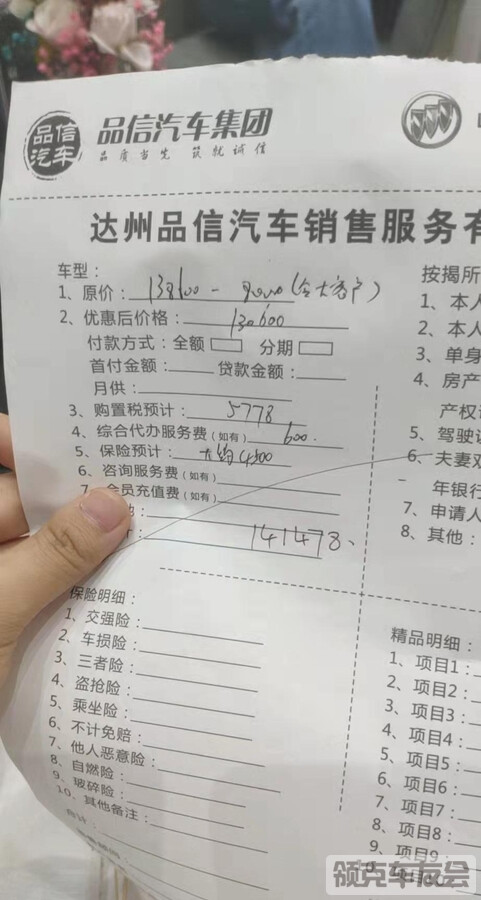 品信汽车
品信汽车集团
品质当先 筑就诚信
达州品信汽车销售服务有
车型：
1、原价：138600 - 8000 (含大客户)
2、优惠后价格：130600
付款方式：全额 分期
首付金额： 贷款金额：
月供：
3、购置税预计：5778
4、综合代办服务费(如有)：600.
5、保险预计：大约4500
6、咨询服务费(如有)：
7、会员充值费(如有)：
141478、
保险明细：
1、交强险：
2、车损险：
3、三者险：
4、盗抢险：
5、乘坐险：
6、不计免赔：
7、他人恶意险：
8、自燃险：
9、玻碎险：
10、其他备注：
合计：
按揭所
1、本人
2、本人
3、单身
4、房产
产权
5、驾驶
6、夫妻双
年银行
7、申请人
8、其他：
精品明细：
1、项目1：
2、项目2：
3、项目3：
4、项目4：
5、项目5：
6、项目6：
7、项目7：
8、项目8：
9、项目9：
领克车友会